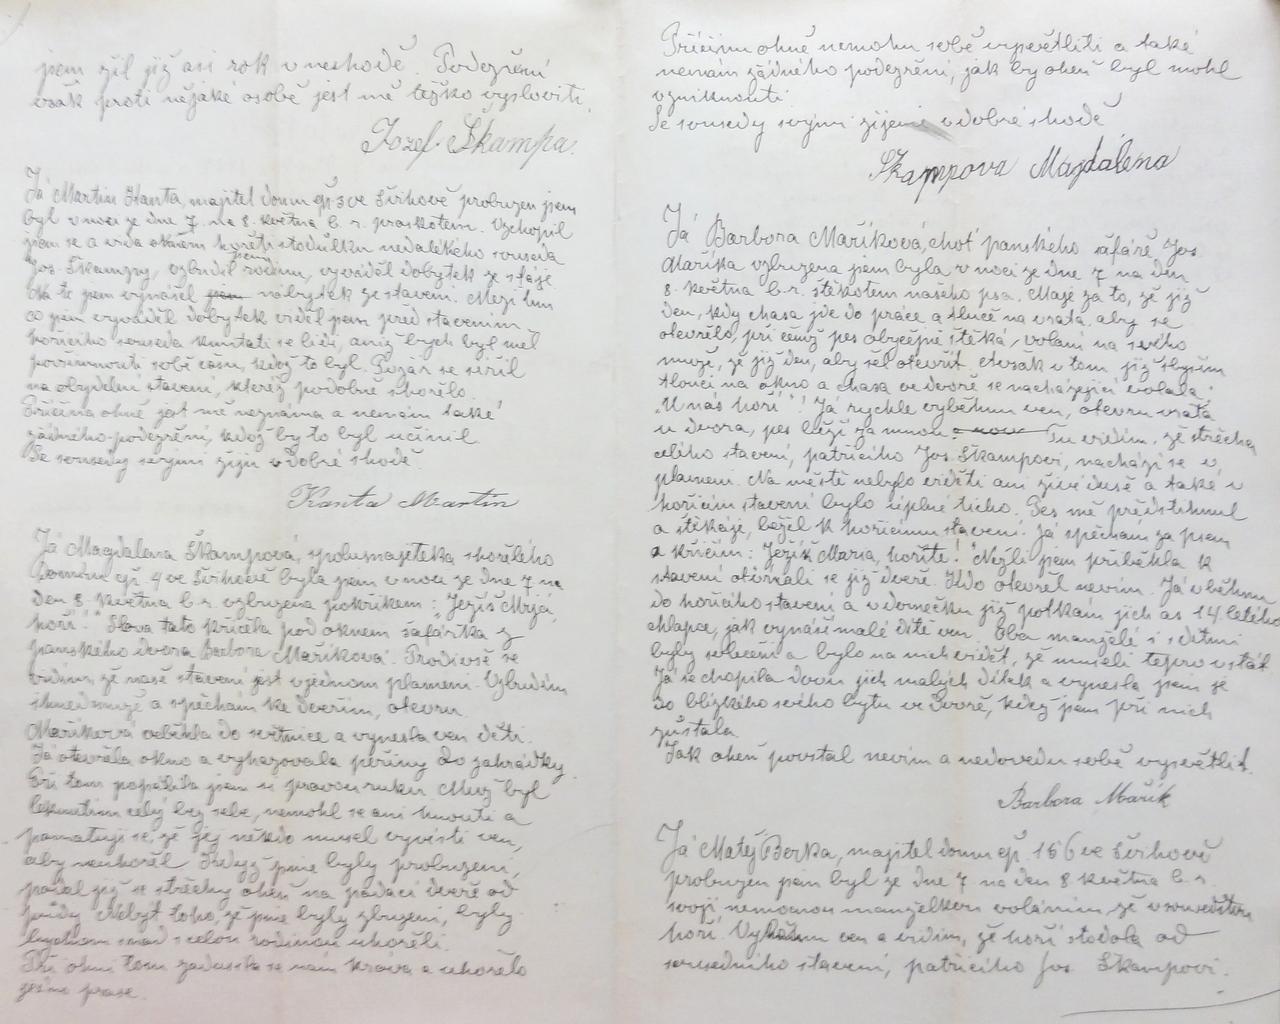 jsem žil již asi rok v neshodě. Podezření
však proti nějaké osobě jest mě těžko vysloviti.
Jozef Škampa.
Já Martin Kanta, majitel domu čp. 3 ve Švihově probuzen jsem
byl v noci ze dne 7. na 8. května b. r. praskotem. Vzchopil
jsem se a vida oknem hořeti stodůlku nedalekého souseda
Jos. Škampy, vzbudil jsem rodinu, vyváděl dobytek ze stáje
Na to jsem vynášel jsem nábytek ze stavení. Mezi tím
co jsem vyváděl dobytek viděl jsem před stavením
hořícího souseda kmitati se lidi, aniž bych byl měl
povšimnouti sobě času, kdož to byl. Požár se šířil
na obydelní stavení, kteréž podobně shořelo.
Příčina ohně jest mě neznáma a nemám také
žádného podezření, kdož by to byl učinil.
Se sousedy svými žiju v dobré shodě.
Kanta Martin
Já Magdalena Škampová, spolumajitelka shořelého
domku čp. 4 ve Švihově byla jsem v noci ze dne 7 na
den 8. května b. r. vzbuzena pokřikem: "Ježíš Marja,
hoří." Slova tato křičela pod oknem šafářka z
panského dvora Barbora Maříková. Probudivše se
vidím, že naše stavení jest v jednom plameni. Vzbudím
ihned muže a spěchám ke dveřím, otevru.
Maříková vběhla do světnice a vynesla ven děti.
Já otevřela okno a vyhazovala peřiny do zahrádky.
Při tom popálila jsem si pravou ruku. Muž byl
leknutím celý bez sebe, nemohl se ani hnouti a
pamatuji se, že jej někdo musel vyvésti ven,
aby neuhořel. Když jsme byly probuzeni,
padal již se střechy oheň na padací dveře od
půdy. Nebýt toho, že jsme byly zbuzeni, byly
bychom snad s celou rodinou uhořeli.
Při ohni tom zadusila se nám kráva a uhořelo
jedno prase.
Příčinu ohně nemohu sobě vysvětliti a také
nemám žádného podezření, jak by oheň byl mohl
vzniknouti.
Se sousedy svými žijeme v dobré shodě
Škampova Magdaléna
Já Barbora Maříková, choť panského šafáře Jos.
Maříka vzbuzena jsem byla v noci ze dne 7 na den
8. května b. r. štěkotem našeho psa. Maje za to, že již
den, kdy chasa jde do práce a tluče na vrata, aby se
otevřelo, při čemž pes obyčejně štěká, volám na svého
muže, že již den, aby šel otevřít. Avšak v tom již slyším
tlouci na okno a chasa ve dvoře se nacházející volala:
"U nás hoří"! Já rychle vyběhnu ven, otevru vrata
u dvora, pes běží za mnou. Tu vidím, že střecha
celého stavení, patřícího Jos. Škampovi, nachází se v
plameni. Na městě nebylo viděti ani živé duše a také v
hořícím stavení bylo úplné ticho. Pes mě předstihnul
a štěkaje, běžel k hořícímu stavení. Já spěchám za psem
a křičím: Ježíš Maria, hoříte! Nežli jsem přiběhla k
stavení otvírali se již dveře. Kdo otevřel nevím. Já vběhnu
do hořícího stavení a v domečku již potkám jich as 14. letého
chlapce, jak vynáší malé dítě ven. Oba manželé i s dětmi
byly svlečeni a bylo na nich vidět, že museli teprv vstát
Já se chopila dvou jich malých dítek a vynesla jsem je
do blízkého svého bytu ve dvoře, kdež jsem při nich
zůstala.
Jak oheň povstal nevím a nedovedu sobě vysvětlit.
Barbora Mařík
Já Matěj Berka, majitel domu čp. 156 ve Švihově
probuzen jsem byl ze dne 7 na den 8 května b. r.
svojí nemocnou manželkou voláním, že v sousedstvu
hoří. Vyběhnu ven a vidím, že hoří stodola od
sousedního stavení, patřícího Jos. Škampovi.